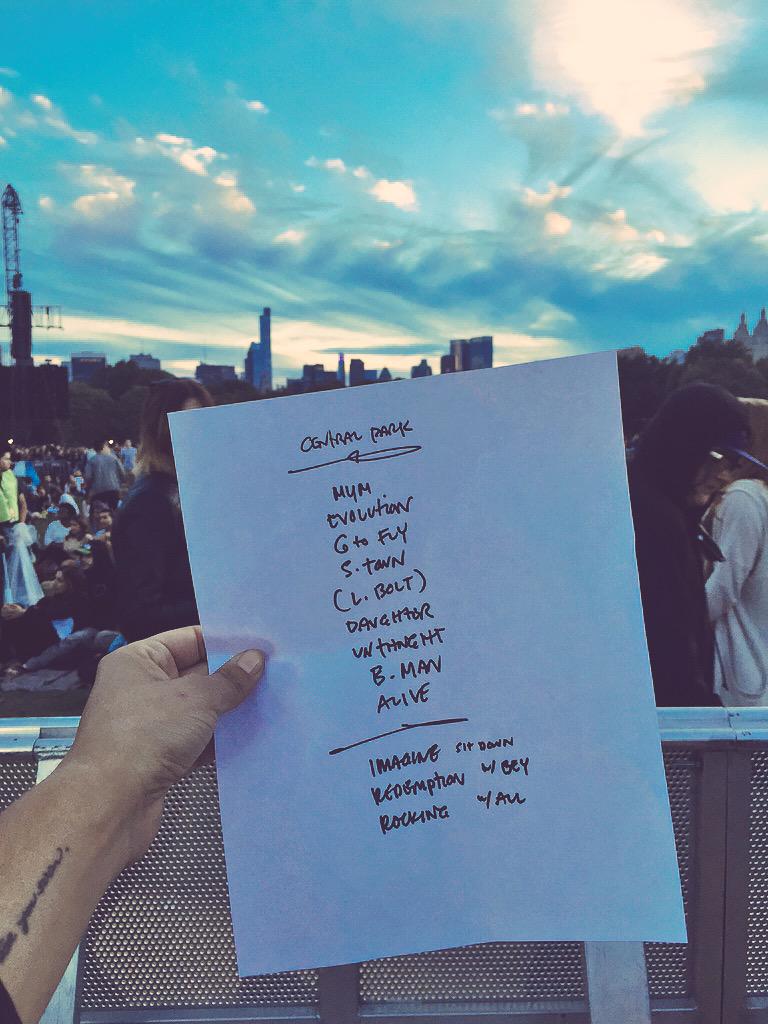 CENTRAL PARK
MYM
EVOLUTION
G to FLY
S. TOWN
(L. BOLT)
DAUGHTER
UNTHNGHT
B. MAN
ALIVE
IMAGINE SIT DOWN
REDEMPTION W/ BEY
ROCKING W/ ALL
your